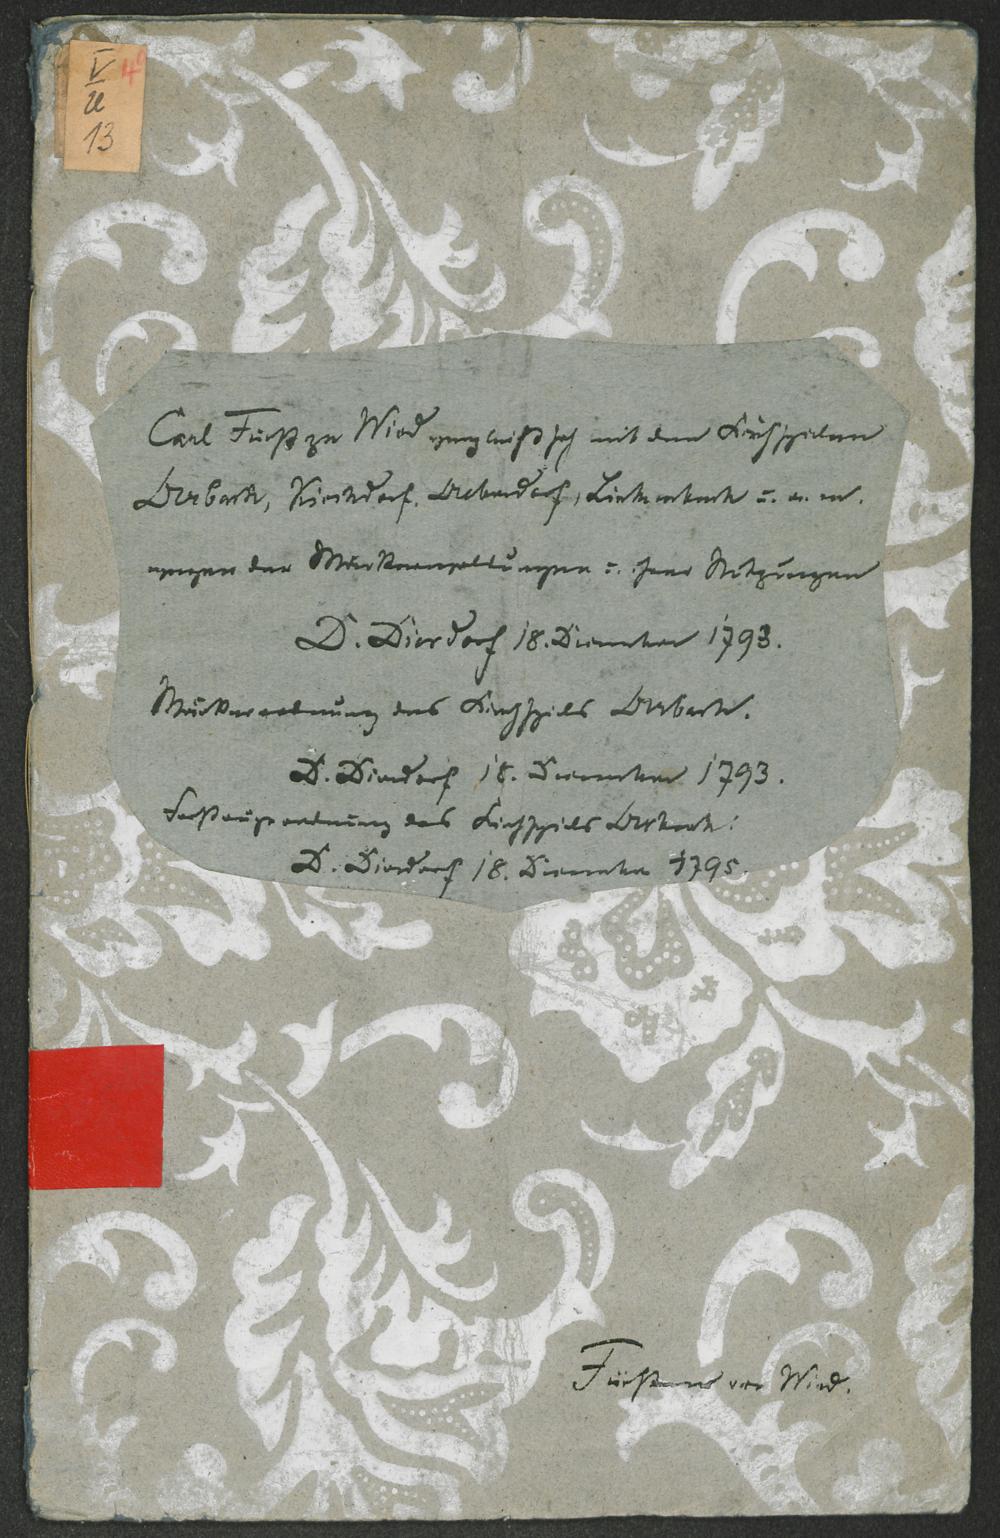 V 4°
u
13
Carl Fürst zu Wied vergleicht sich mit den Kirchspielen
Urbach, Kirchdorf, Lichenbach u. a. m.
wegen der u. Nutzungen
D. Dierdorf 18. Dezember 1793.
Märkerordnung des Kirchspiels Urbach.
D. Dierdorf 18. Dezember 1793.
des Kirchspiels Urbach:
D. Dierdorf 18. Dezember 1795.
Fürsten von Wied.